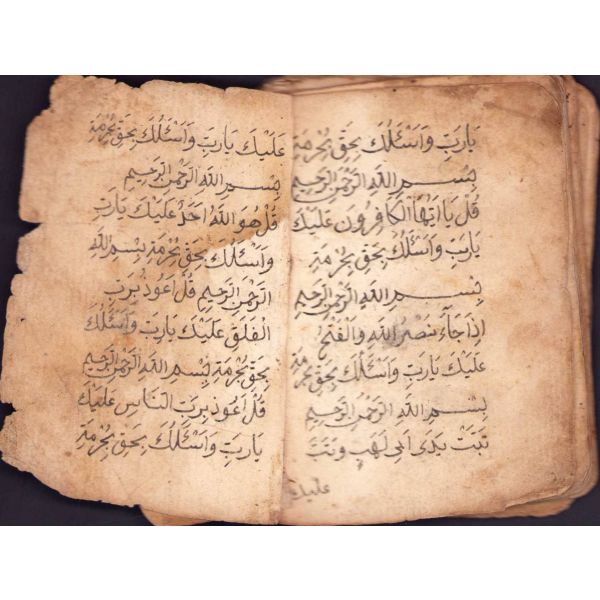 يَارَبِّ وَاَسْئَلُكَ بِحَقِّ بِحُرْمَةِ
بِسْمِ اللهِ الرَّحْمٰنِ الرَّحِيمِ
قُلْ يَا اَيُّهَا الْكَافِرُونَ عَلَيْكَ
يَارَبِّ وَاَسْئَلُكَ بِحَقِّ بِحُرْمَةِ
بِسْمِ اللهِ الرَّحْمٰنِ الرَّحِيمِ
اِذَا جَاءَ نَصْرُ اللهِ وَالْفَتْحُ
عَلَيْكَ يَارَبِّ وَاَسْئَلُكَ بِحَقِّ بِحُرْمَةِ
بِسْمِ اللهِ الرَّحْمٰنِ الرَّحِيمِ
تَبَّتْ يَدَى اَبِى لَهَبٍ وَتَبَّ
عليك
عَلَيْكَ يَارَبِّ وَاَسْئَلُكَ بِحَقِّ بِحُرْمَةِ
بِسْمِ اللهِ الرَّحْمٰنِ الرَّحِيمِ
قُلْ هُوَ اللهُ اَحَدٌ عَلَيْكَ يَارَبِّ
وَاَسْئَلُكَ بِحَقِّ بِحُرْمَةِ بِسْمِ اللهِ
الرَّحْمٰنِ الرَّحِيمِ قُلْ اَعُوذُ بِرَبِّ
الْفَلَقِ عَلَيْكَ يَارَبِّ وَاَسْئَلُكَ
بِحَقِّ بِحُرْمَةِ بِسْمِ اللهِ الرَّحْمٰنِ الرَّحِيمِ
قُلْ اَعُوذُ بِرَبِّ النَّاسِ عَلَيْكَ
يَارَبِّ وَاَسْئَلُكَ بِحَقِّ بِحُرْمَةِ